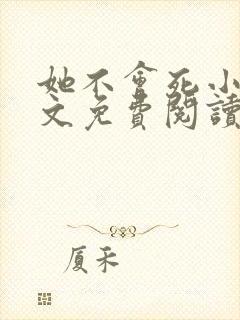 她不會死小
文免費閱讀
厦禾